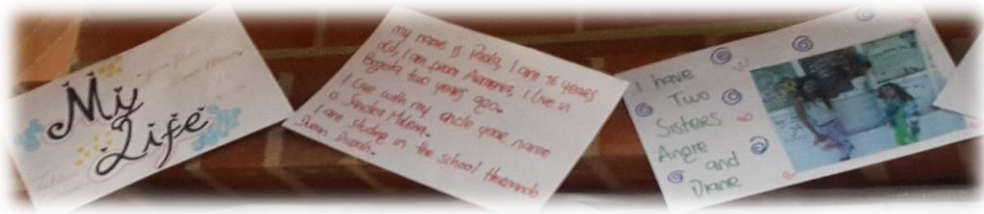 My
Life
my name is Paola, I are 16 years
old, I am from Arauania, I live in
Bogota two years ago.
I Live with my uncle your name
is Sandra Milena.
I are studing in the school Hernando
Duran Dusán.
I have
Two
Sisters
Angie
and
Diane